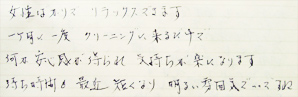 女性ばかりで リラックスできます
一ヶ月に一度 クリーニングに来るだけで
何か安心感が得られ 気持ちが楽になります
待ち時間も 最近 短くなり 明るい雰囲気でいいですね